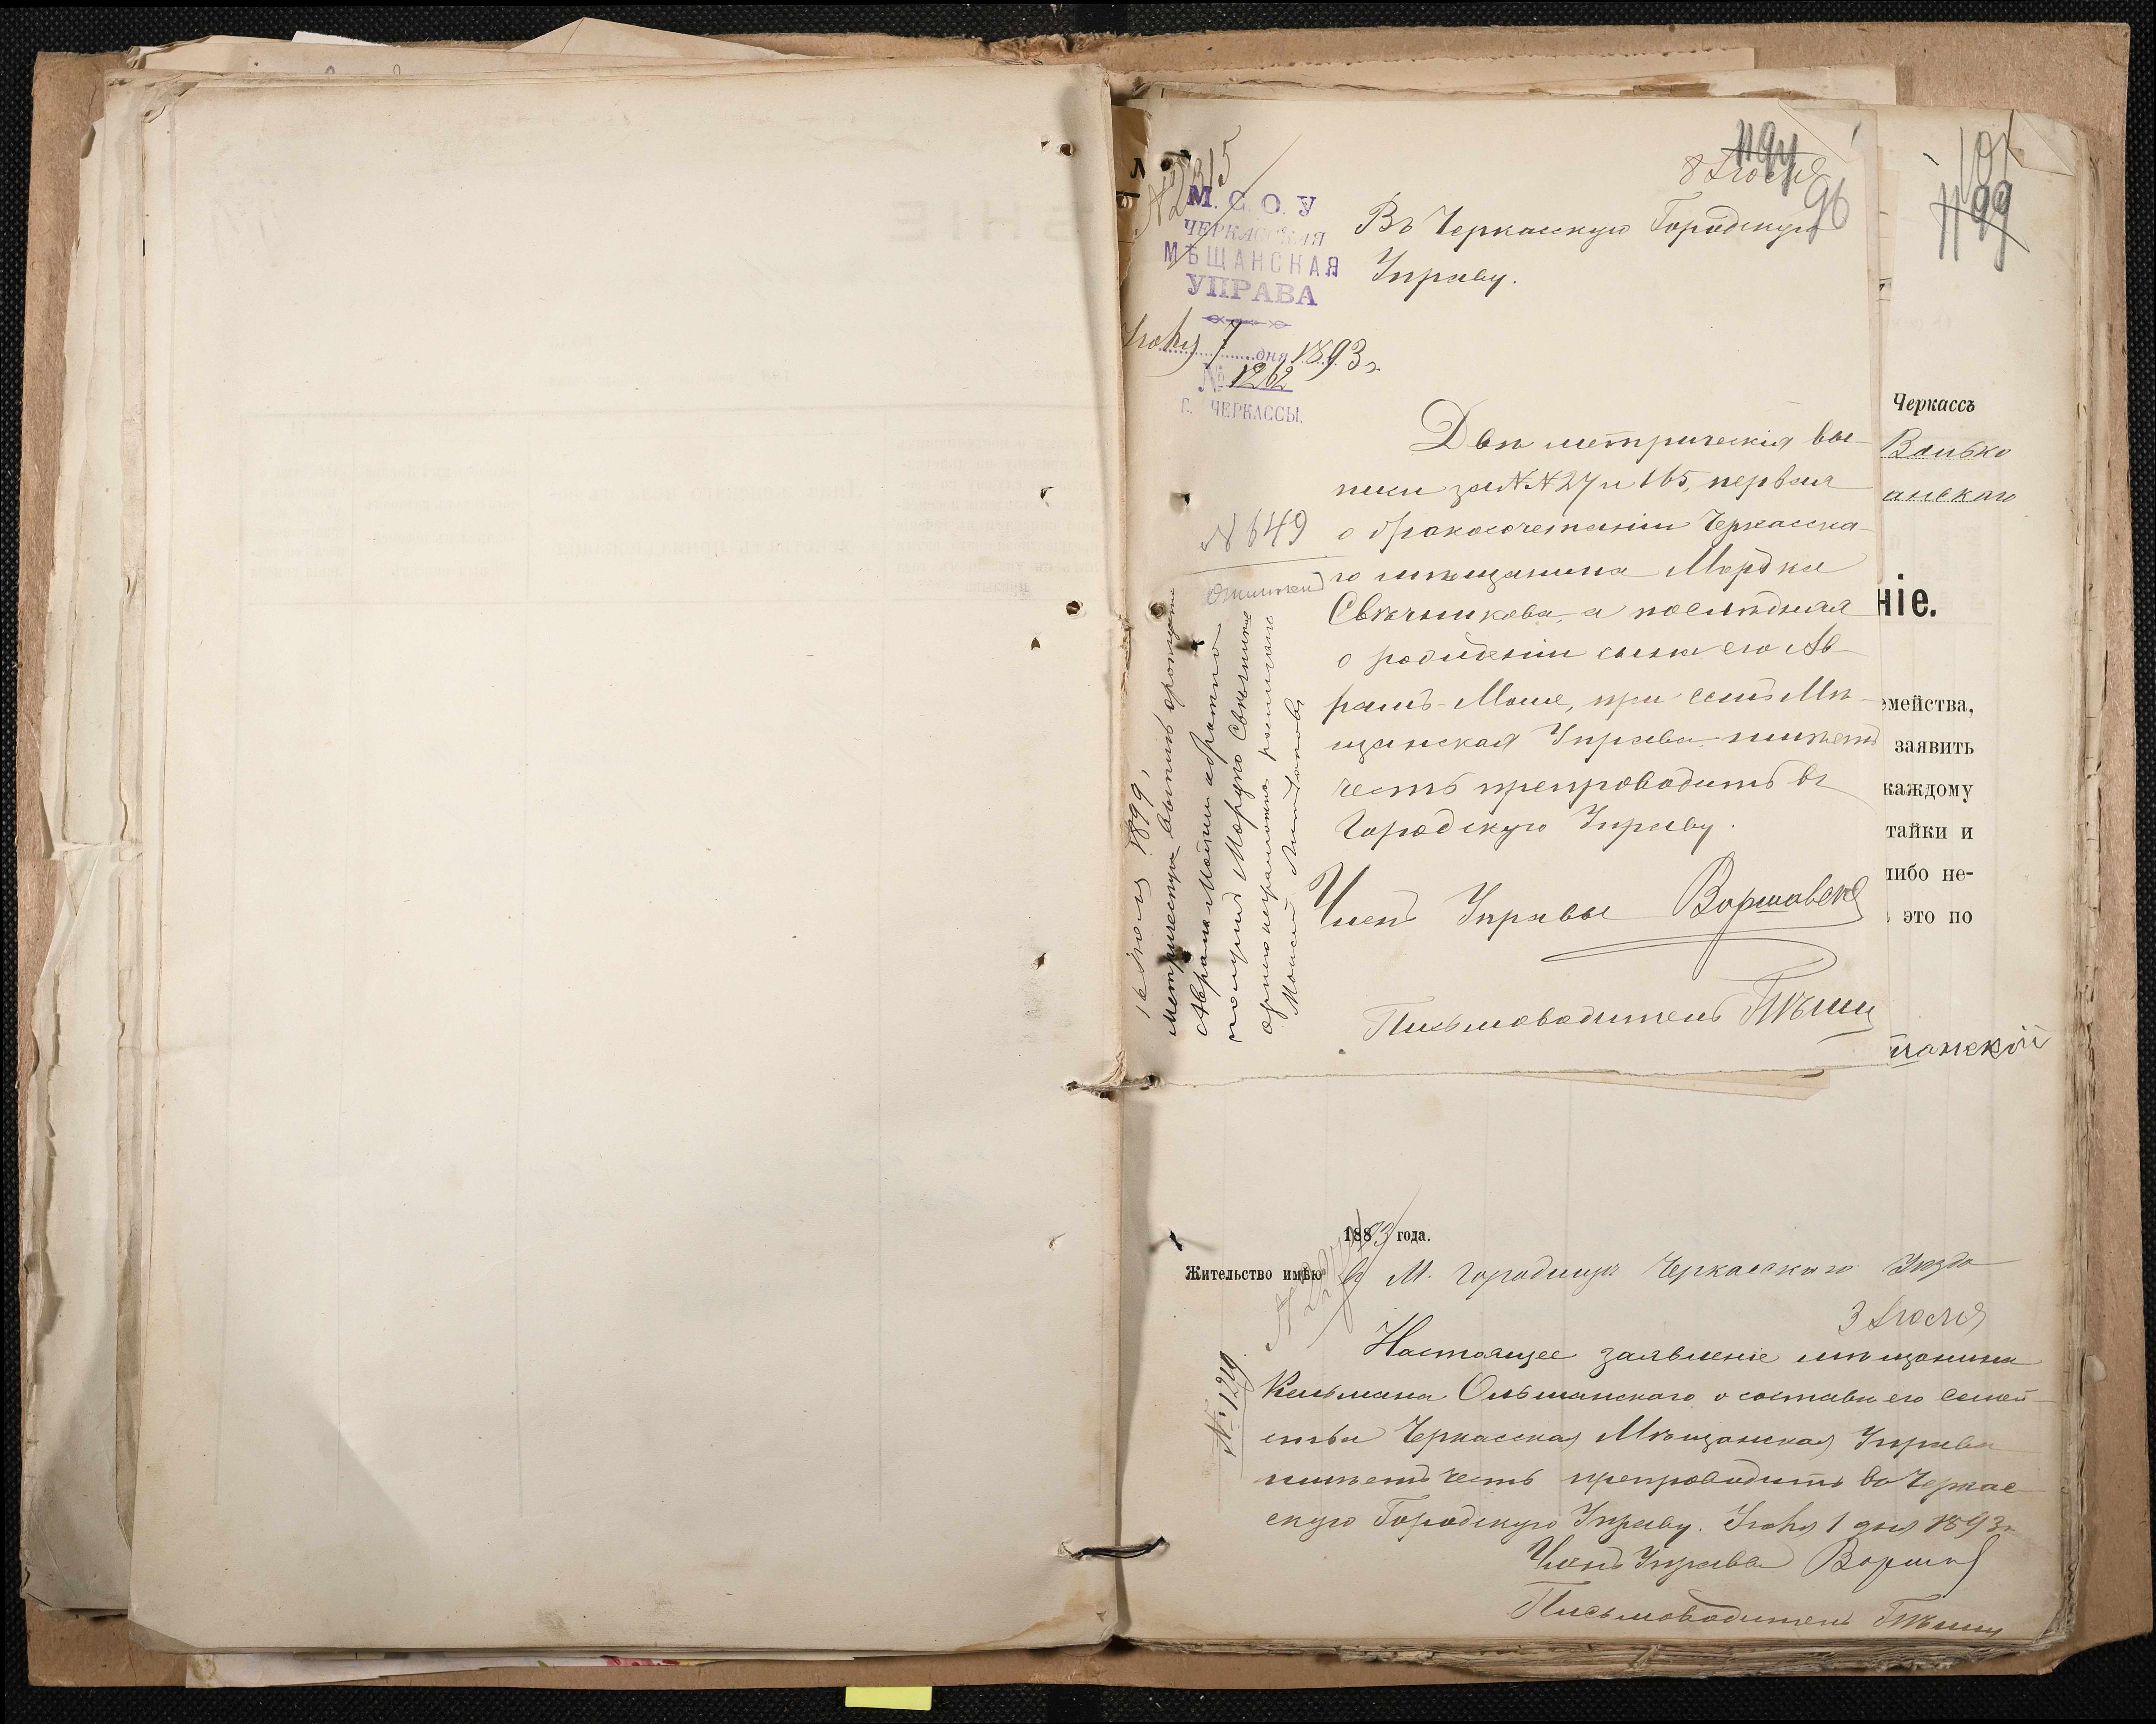 1194
8 Іюля
96
№ 2315
М. С. О. У
ЧЕРКАССКАЯ
МѢЩАНСКАЯ
УПРАВА
7 дня 1893 г.
№ 1262
Г. ЧЕРКАССЫ.
Въ Черкасскую Городскую
Управу.
Двѣ метрическія вы-
писи за №№ 27 и 165, первая
о бракосочетаніи Черкасска-
го мѣщанина Мордка
Свѣчникова, а послѣдняя
о рожденіи сына его Ав-
рамъ-Моше, при семъ Мѣ-
щанская Управа имѣетъ
честь препроводить въ
Городскую Управу.
Членъ Управы Варшавск
Письмоводитель
№ 649
16 Іюля 1899,
метрическую выпись
Аврама Мойши обратно
получилъ Мордко Свѣчников
неграмотна
101
1199
Черкассъ
анскаго
ніе.
емейства,
заявить
каждому
тайки и
либо не-
это по
щанской
1893 года.
Жительство имѣю въ М. Городищѣ Черкасскаго Уѣзда
3 Іюля
№ 1219
Настоящее заявленіе мѣщанина
Кельмана Ольшанскаго о составѣ его семей-
ства Черкасская Мѣщанская Управа
имѣетъ честь препроводить въ Черкас-
скую Городскую Управу. 1 дня 1893 г.
Членъ Управы
Письмоводитель